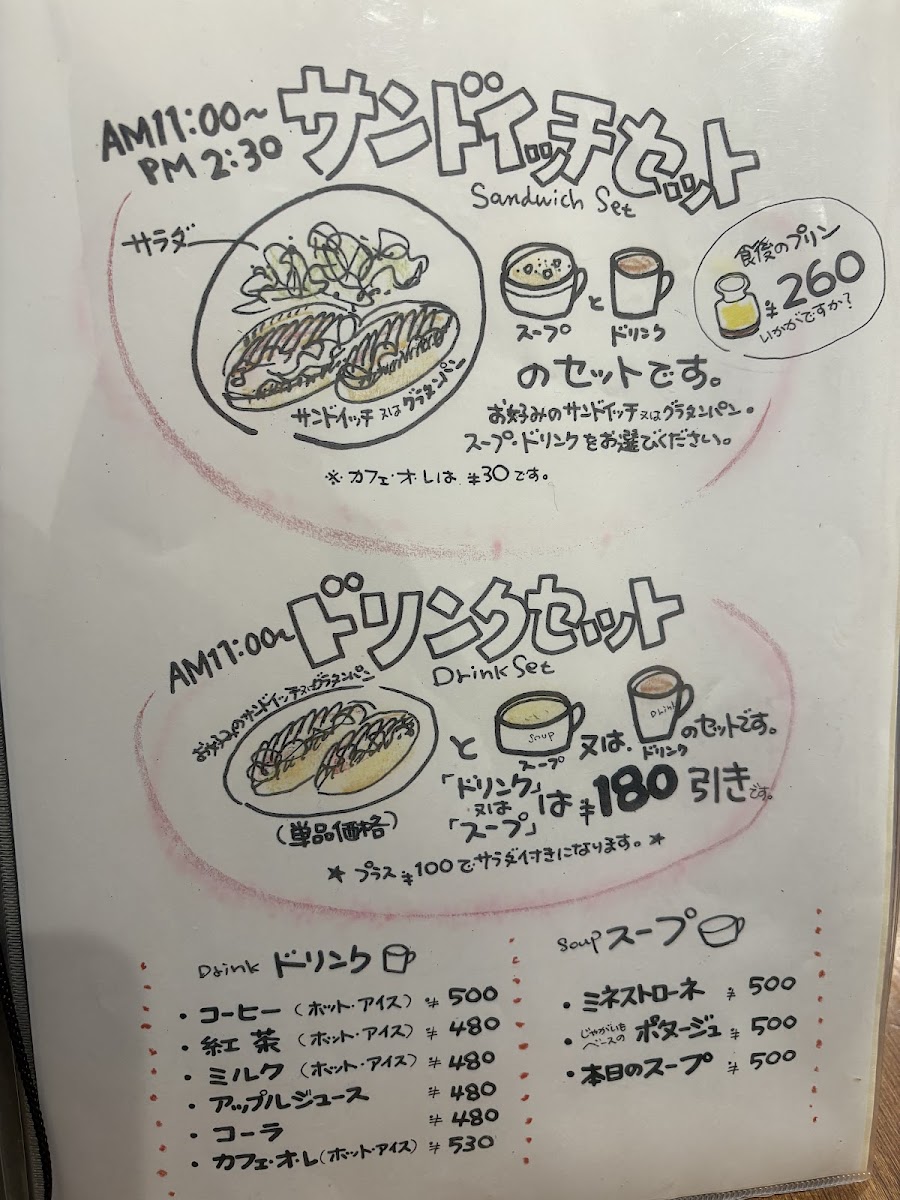 AM11:00〜
PM 2:30
サンドイッチセット
Sandwich Set
サラダ
サンドイッチ 又は グラタンパン
スープ と ドリンク
のセットです。
食後のプリン
¥260
いかがですか?
お好みのサンドイッチ又はグラタンパン・
スープ・ドリンクをお選びください。
※カフェ・オ・レは ¥30です。
AM11:00〜
ドリンクセット
Drink Set
お好みのサンドイッチ又はグラタンパン
(単品価格)
と soup スープ 又は、Drink ドリンク のセットです。
「ドリンク」
又は
「スープ」
は ¥180 引きです。
★ プラス ¥100でサラダ付きになります。★
Drink ドリンク
・コーヒー (ホット・アイス) ¥500
・紅茶 (ホット・アイス) ¥480
・ミルク (ホット・アイス) ¥480
・アップルジュース ¥480
・コーラ ¥480
・カフェ・オ・レ(ホット・アイス) ¥530
Soup スープ
・ミネストローネ ¥500
・じゃがいもベースの ポタージュ ¥500
・本日のスープ ¥500